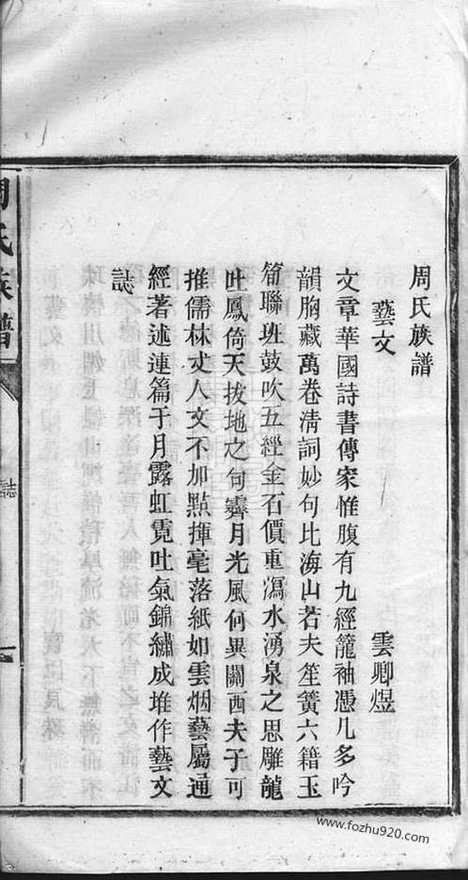 周氏族譜
藝文　雲卿煜
文章華國詩書傳家惟腹有九經籠袖憑几多吟
韻胸藏萬卷清詞妙句比海山若夫笙簧六籍玉
筍聯班鼓吹五經金石價重瀉水湧泉之思雕龍
吐鳳倚天拔地之句霽月光風何異關西夫子可
推儒林丈人文不加點揮毫落紙如雲烟藝屬通
經著述連篇于月露虹霓吐氣錦繡成堆作藝文
誌
周氏族譜
誌
www.fozhu920.com